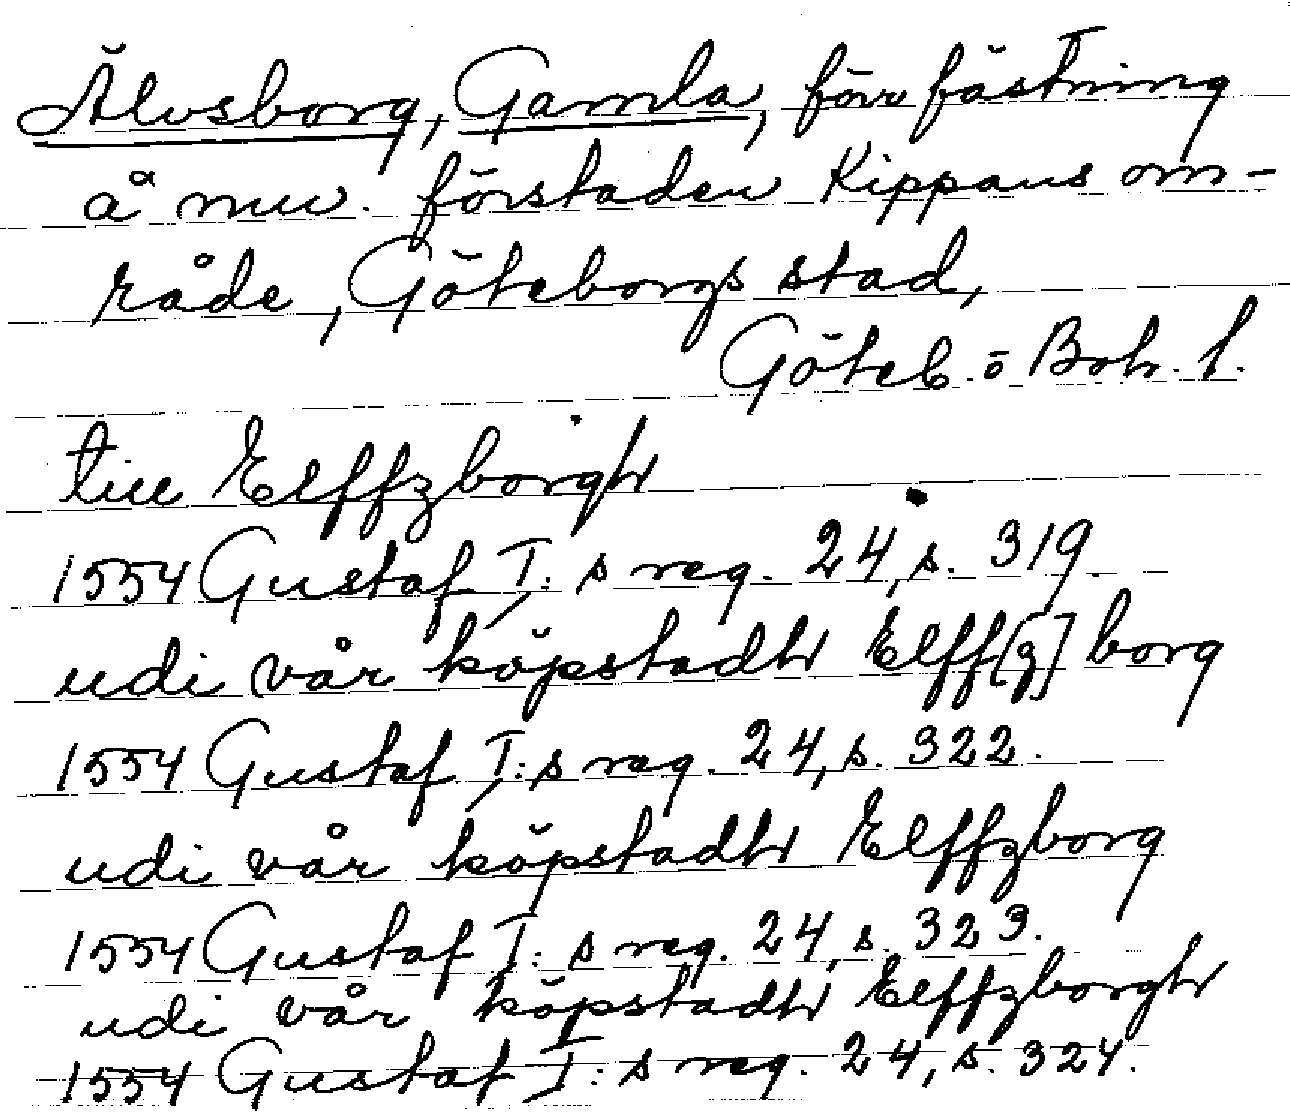 Älvsborg, Gamla, förr fästning
å nuv. förstaden Kippans om-
råde, Göteborgs stad,
Göteb. o Boh. l.
till Elffzborgh
1554 Gustaf I:s reg. 24, s. 319
udi vår köpstadh Elff[z]borg
1554 Gustaf I:s reg. 24, s. 322.
udi vår köpstadh Elffzborg
1554 Gustaf I:s reg. 24, s. 323.
udi vår köpstadh Elffzborgh
1554 Gustaf I:s reg. 24, s. 324.